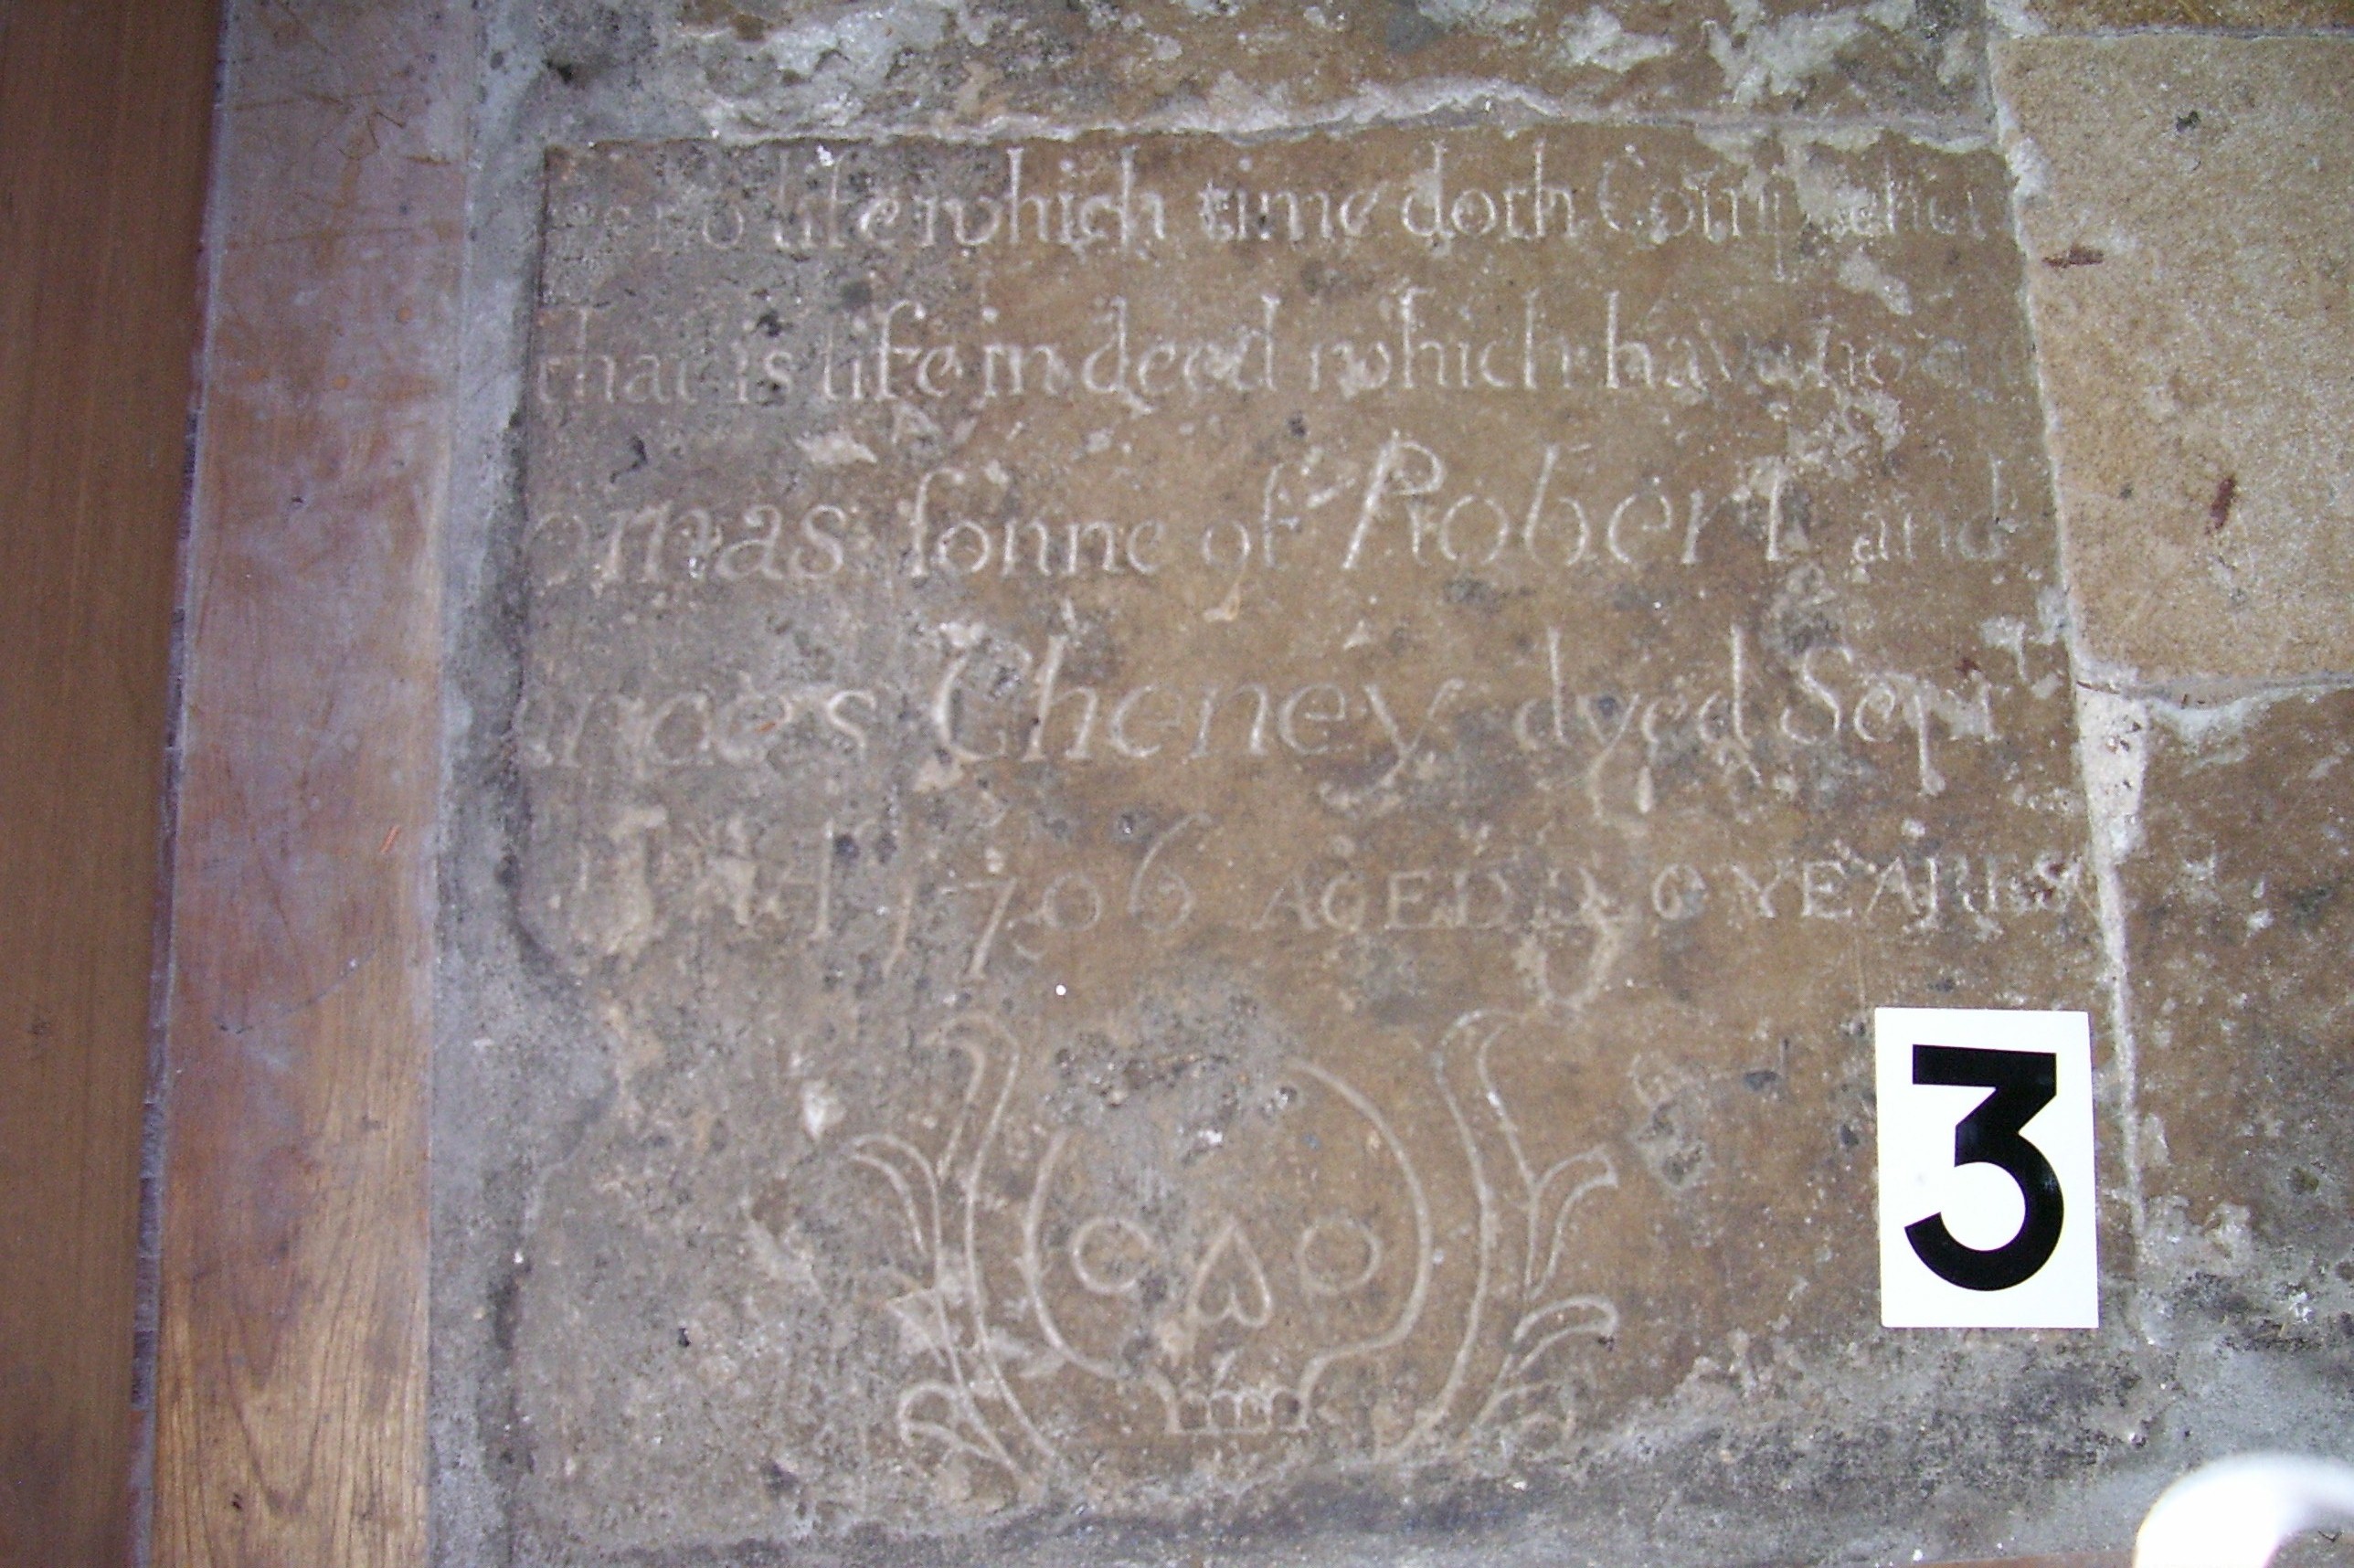 no life which time doth
that is life indeed which
omas sonne of Robert and
ances Cheney dyed Sept
1706 AGED YEARS
3